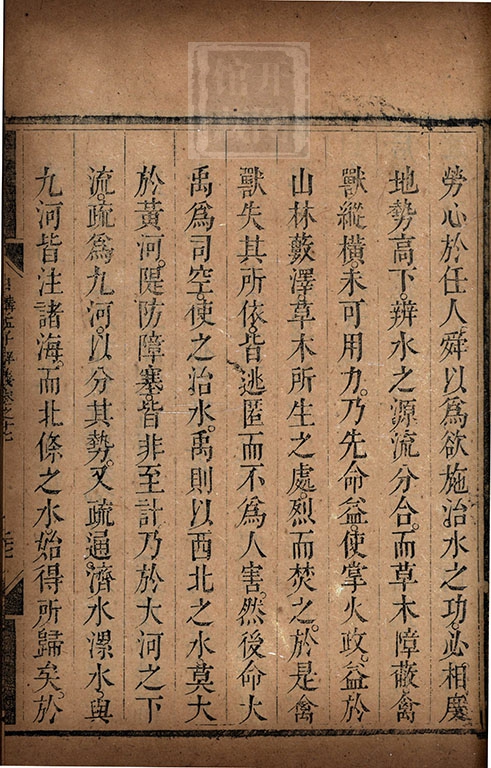 勞心於任人舜以爲欲施治水之功必相度
地勢高下辨水之源流分合而草木障蔽禽
獸縱橫未可用力乃先命益使掌火政益於
山林藪澤草木所生之處烈而焚之於是禽
獸失其所依皆逃匿而不爲人害然後命大
禹爲司空使之治水禹則以西北之水莫大
於黃河隄防障塞皆非至計乃於大河之下
流疏爲九河以分其勢又疏通濟水漯水與
九河皆注諸海而北條之水始得所歸矣於